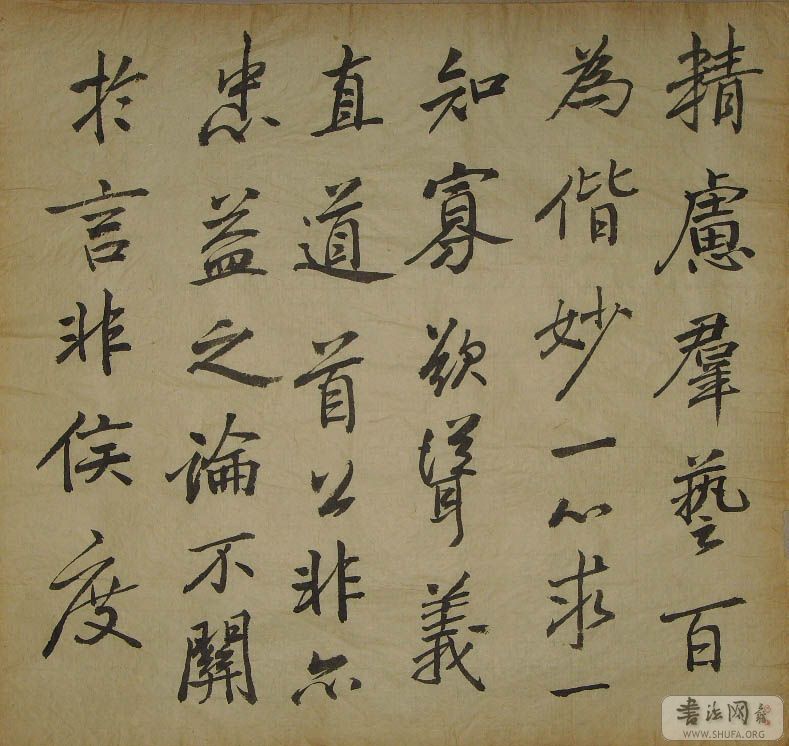 精慮羣藝百
為偕妙一心求一
知寡欲聳義
直道首公非尒
忠益之論不關
於言非侯度
書法网
WWW.SHUFA.ORG